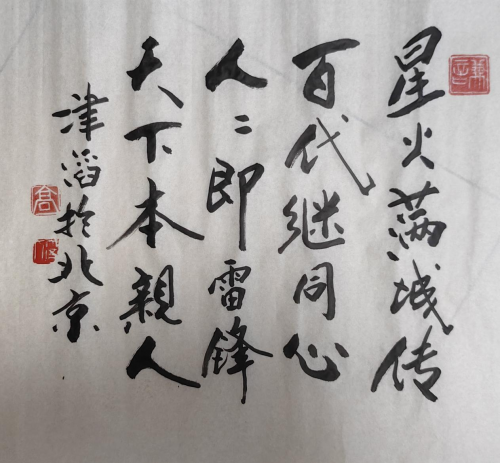 星火满城传
百代继同心
人二即雷锋
天下本親人
津滔於北京